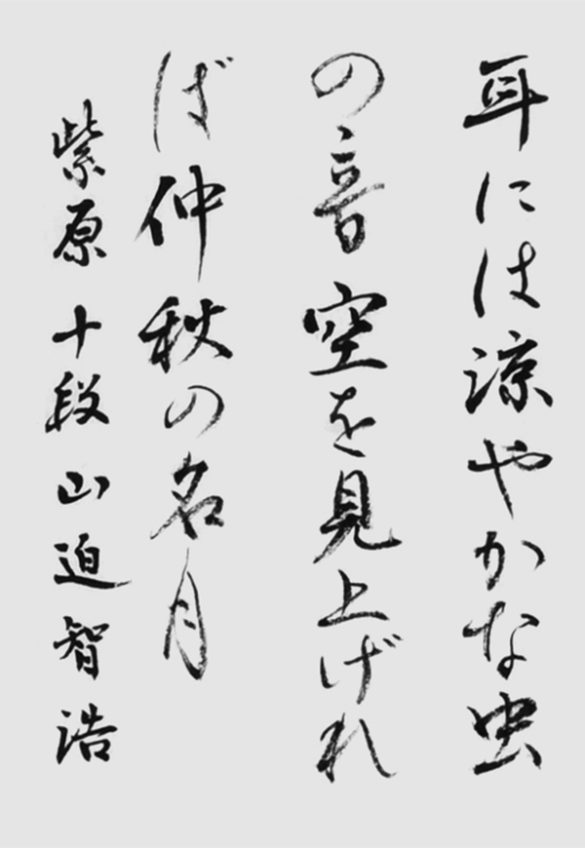 耳には涼やかな虫
の音空を見上げれ
ば仲秋の名月
紫原十段山迫智浩